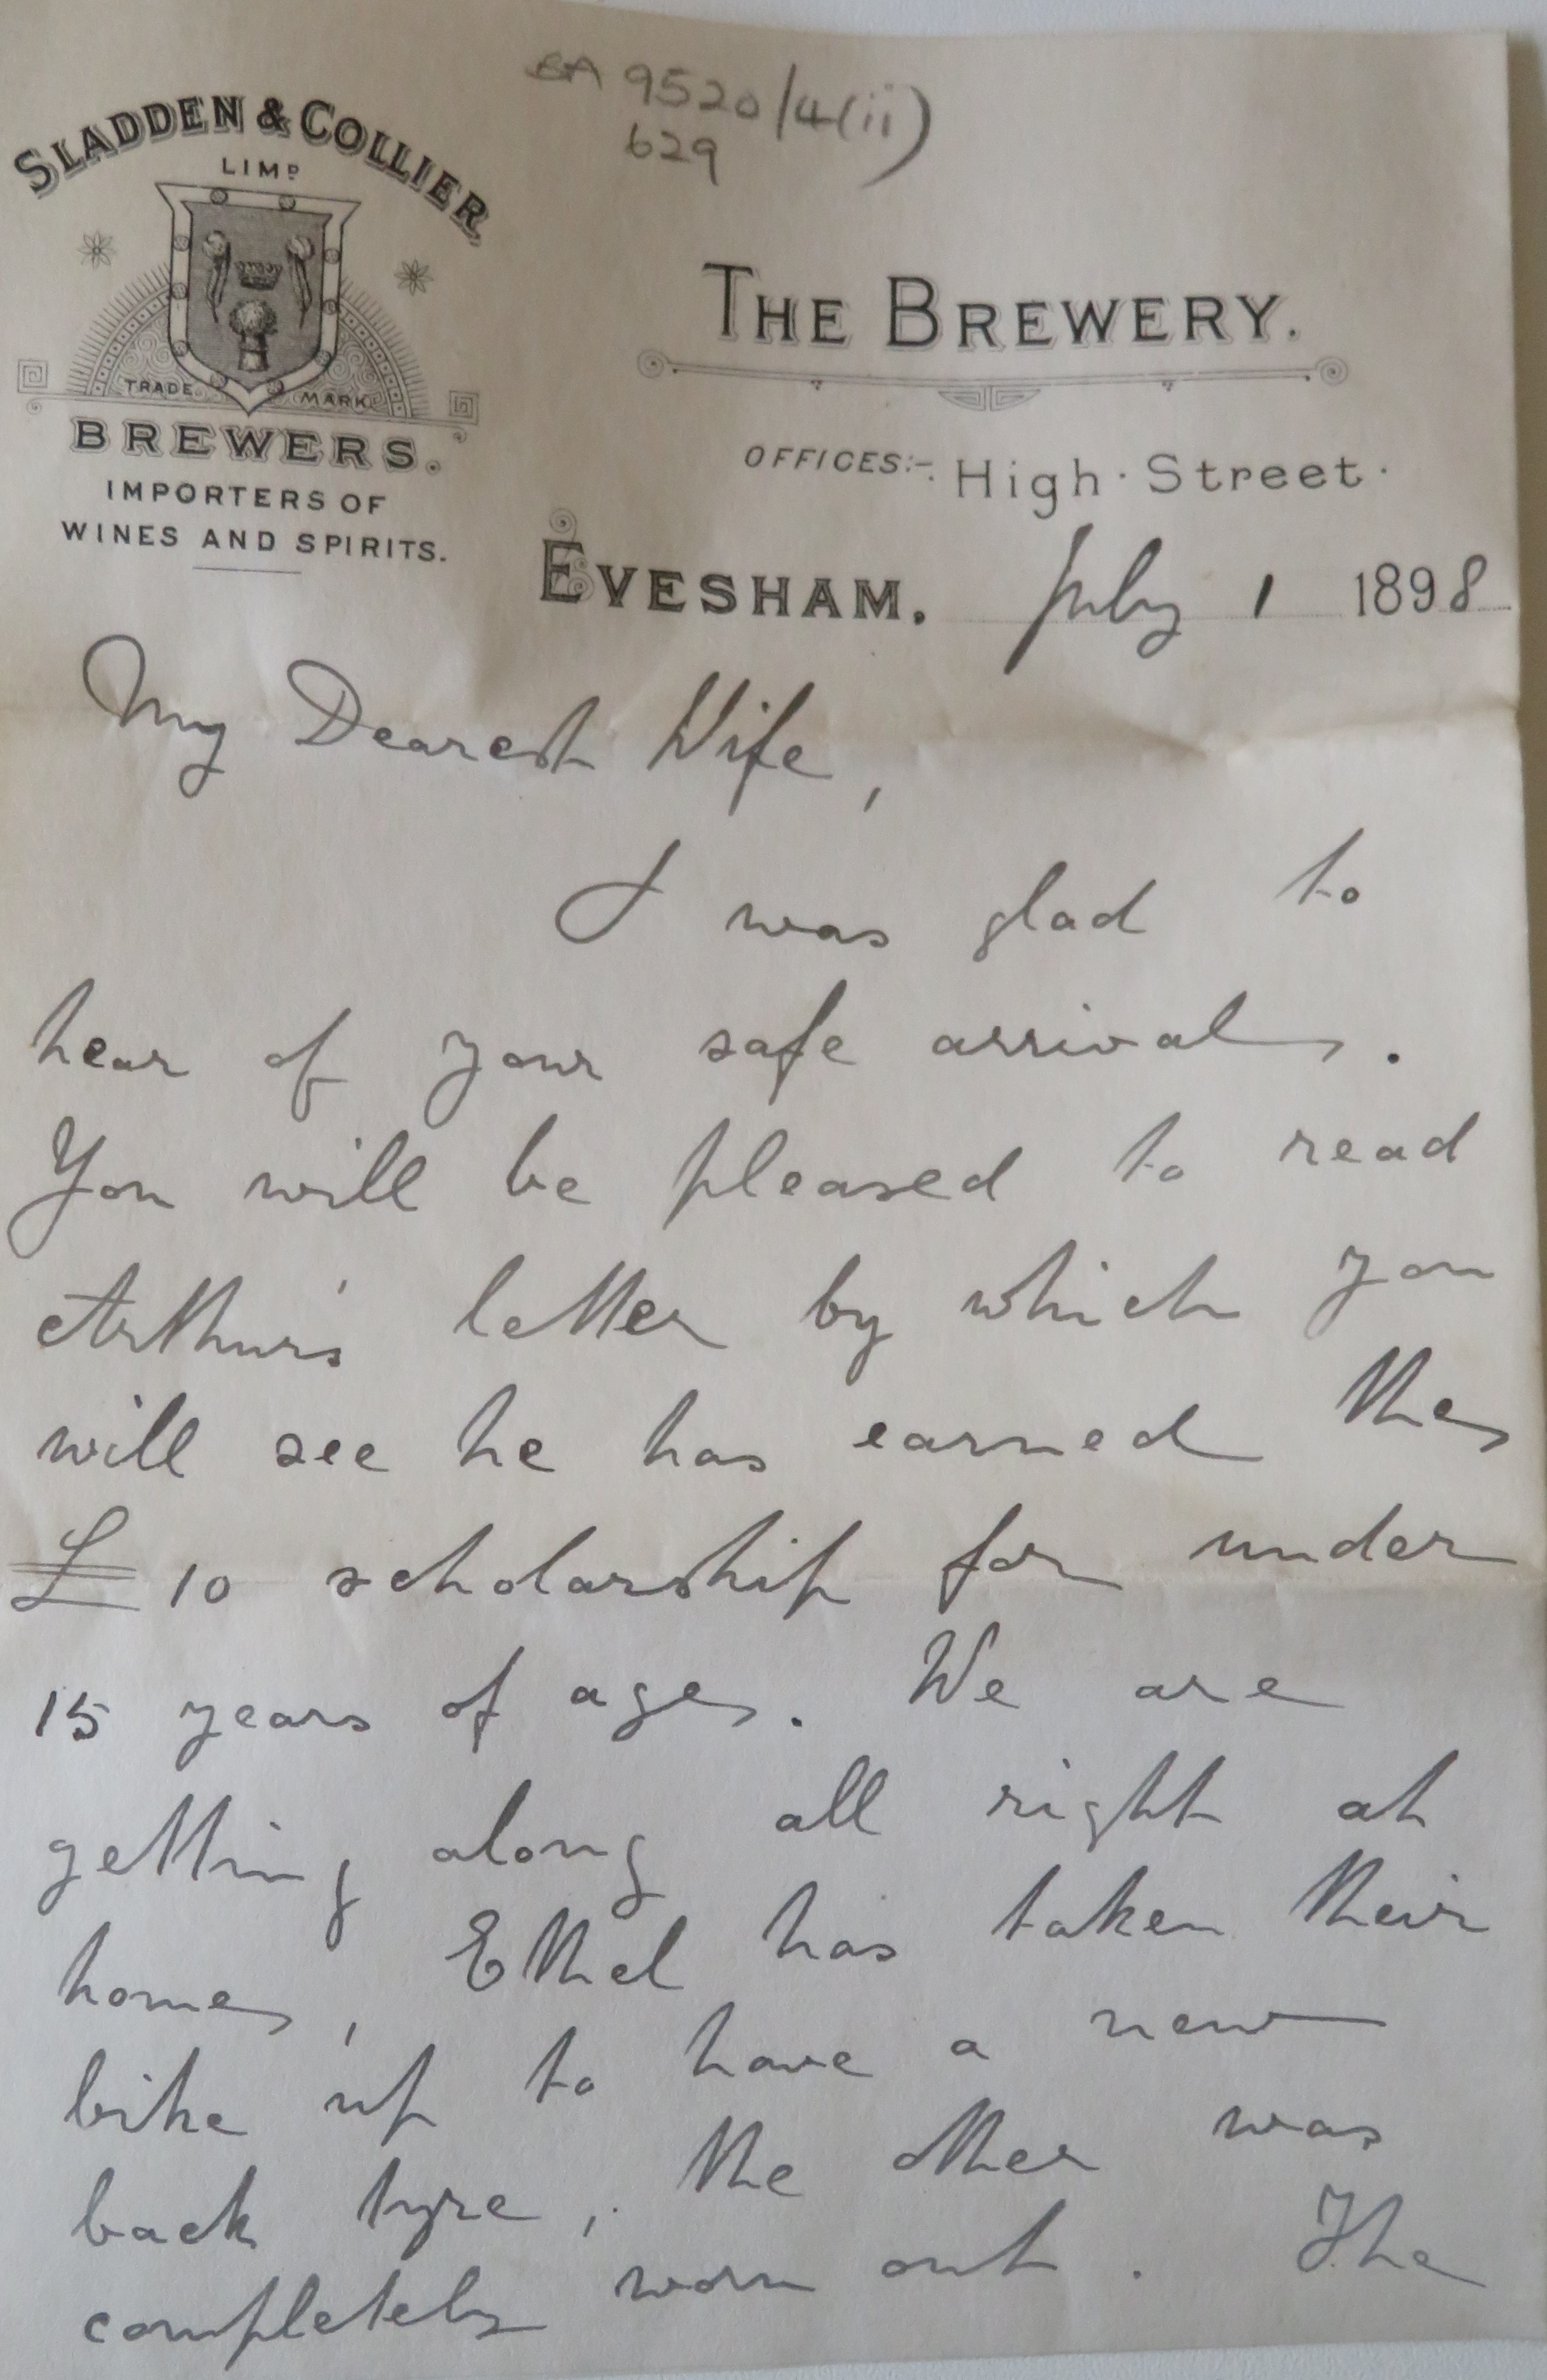 BA 9520/4(ii)
629
SLADDEN & COLLIER
LIMD
TRADE MARK
BREWERS.
IMPORTERS OF
WINES AND SPIRITS.
THE BREWERY.
OFFICES:- High Street.
EVESHAM. July 1 1898
My Dearest Wife,
I was glad to
hear of your safe arrival.
You will be pleased to read
Arthur's letter by which you
will see he has earned the
£10 scholarship for under
15 years of age. We are
getting along all right at
home, Ethel has taken their
bike up to have a new
back tyre, the other was
completely worn out. The